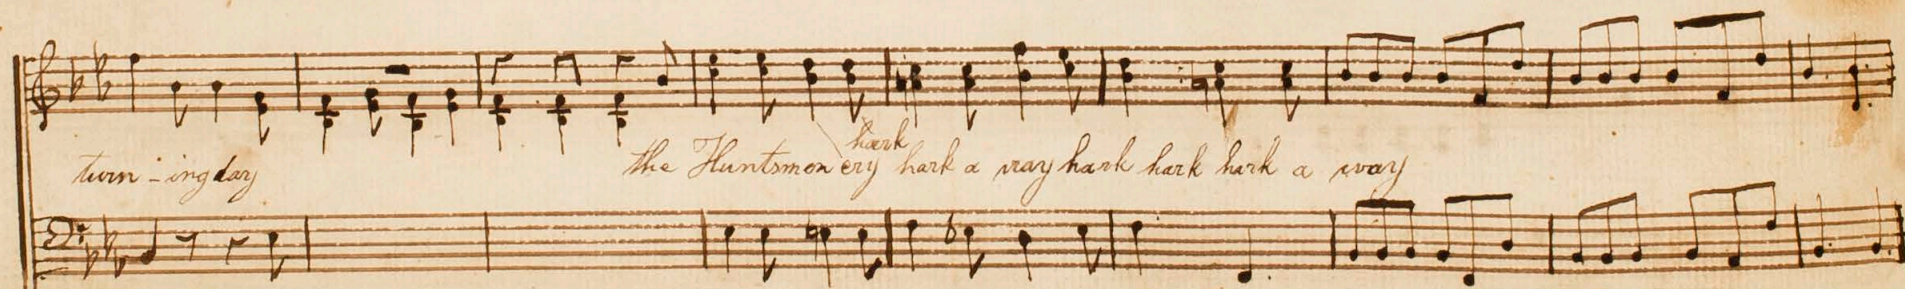 hark
turn - ing day the Huntsmen cry hark a way hark hark hark a way